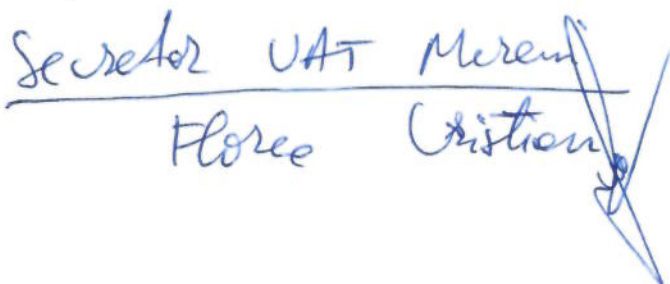 Secretar UAT Mereni
Florea Cristian